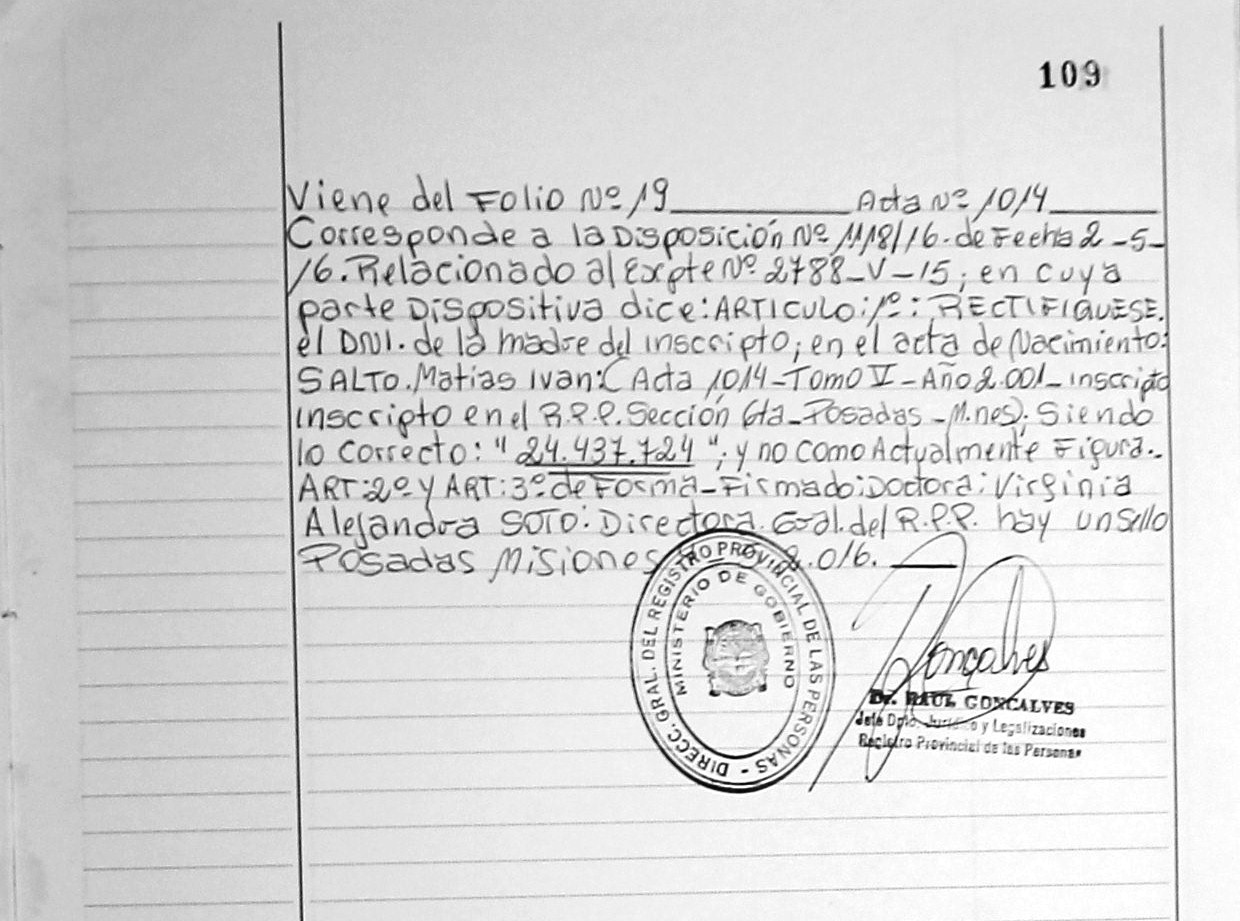 109
Viene del Folio Nº 19 Acta Nº 1014
Corresponde a la Disposición Nº 1118/16. de Fecha 2-5-
16. Relacionado al Expte Nº 2788-V-15; en cuya
parte Dispositiva dice: ARTICULO: 1º: RECTIFIQUESE.
el DNI. de la madre del inscripto; en el acta de Nacimiento:
SALTO. Matias Ivan: (Acta 1014-Tomo V-Año 2.001-inscripto
inscripto en el R.P.P. Sección 6ta-Posadas-M.nes). Siendo
lo correcto: "24.437.724"; y no como Actualmente Figura.-
ART: 2º y ART: 3º de Forma-Firmado: Doctora: Virginia
Alejandra SOTO: Directora. Gral. del R.P.P. hay un Sello
Posadas Misiones 2.016.
DIRECC. GRAL. DEL REGISTRO PROVINCIAL DE LAS PERSONAS -
MINISTERIO DE GOBIERNO
Gonçalves
Dr. RAUL GONCALVES
Jefe Dpto. Jurídico y Legalizaciones
Registro Provincial de las Personas